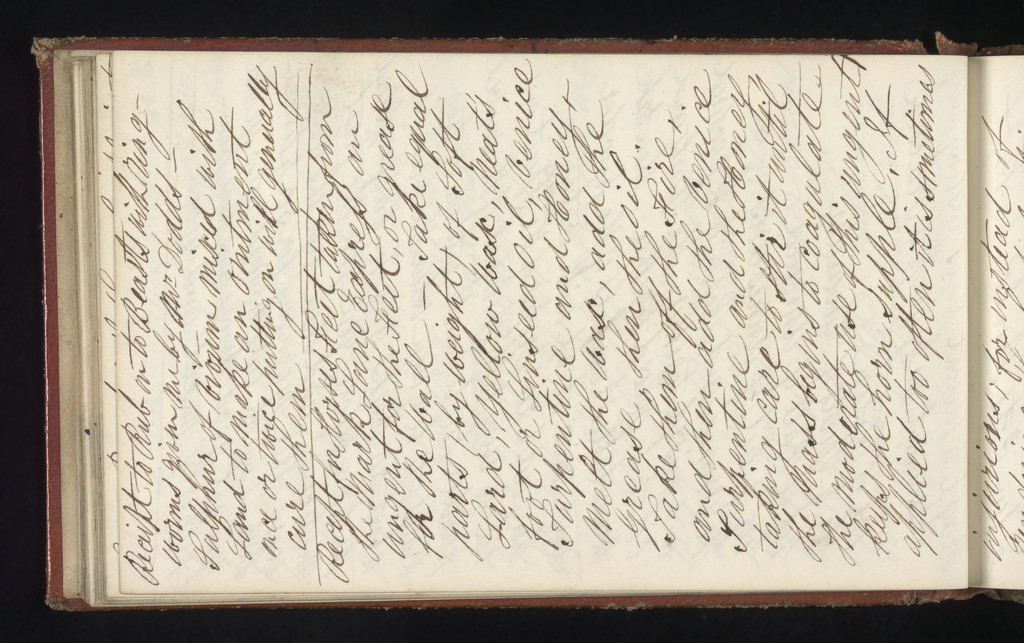 Reciept to Rub on to Beasts with ring-
worms given me by Mr. Dodds -
Sulphur & vivium mixed with
Lard to make an ointment
once or twice putting on will generally
cure them
Recept for horses Feet taken from
the Mark Lane Express an
unguent for the Feet, or grease
for the ball. - Take equal
parts, by weight, of Soft
Lard, Yellow wax, Neat's
foot or Linseed oil, Venice
Turpentine and Honey +
melt the wax, add the
grease then the oil.
Take them off the Fire,
and then add the Venice
Turpentine and the Honey
taking care to stir it until
the mass begins to coagulate.
The moderate use of this unguent
keeps the horn supple. If
applied too often it is sometimes
injurious, for instead of